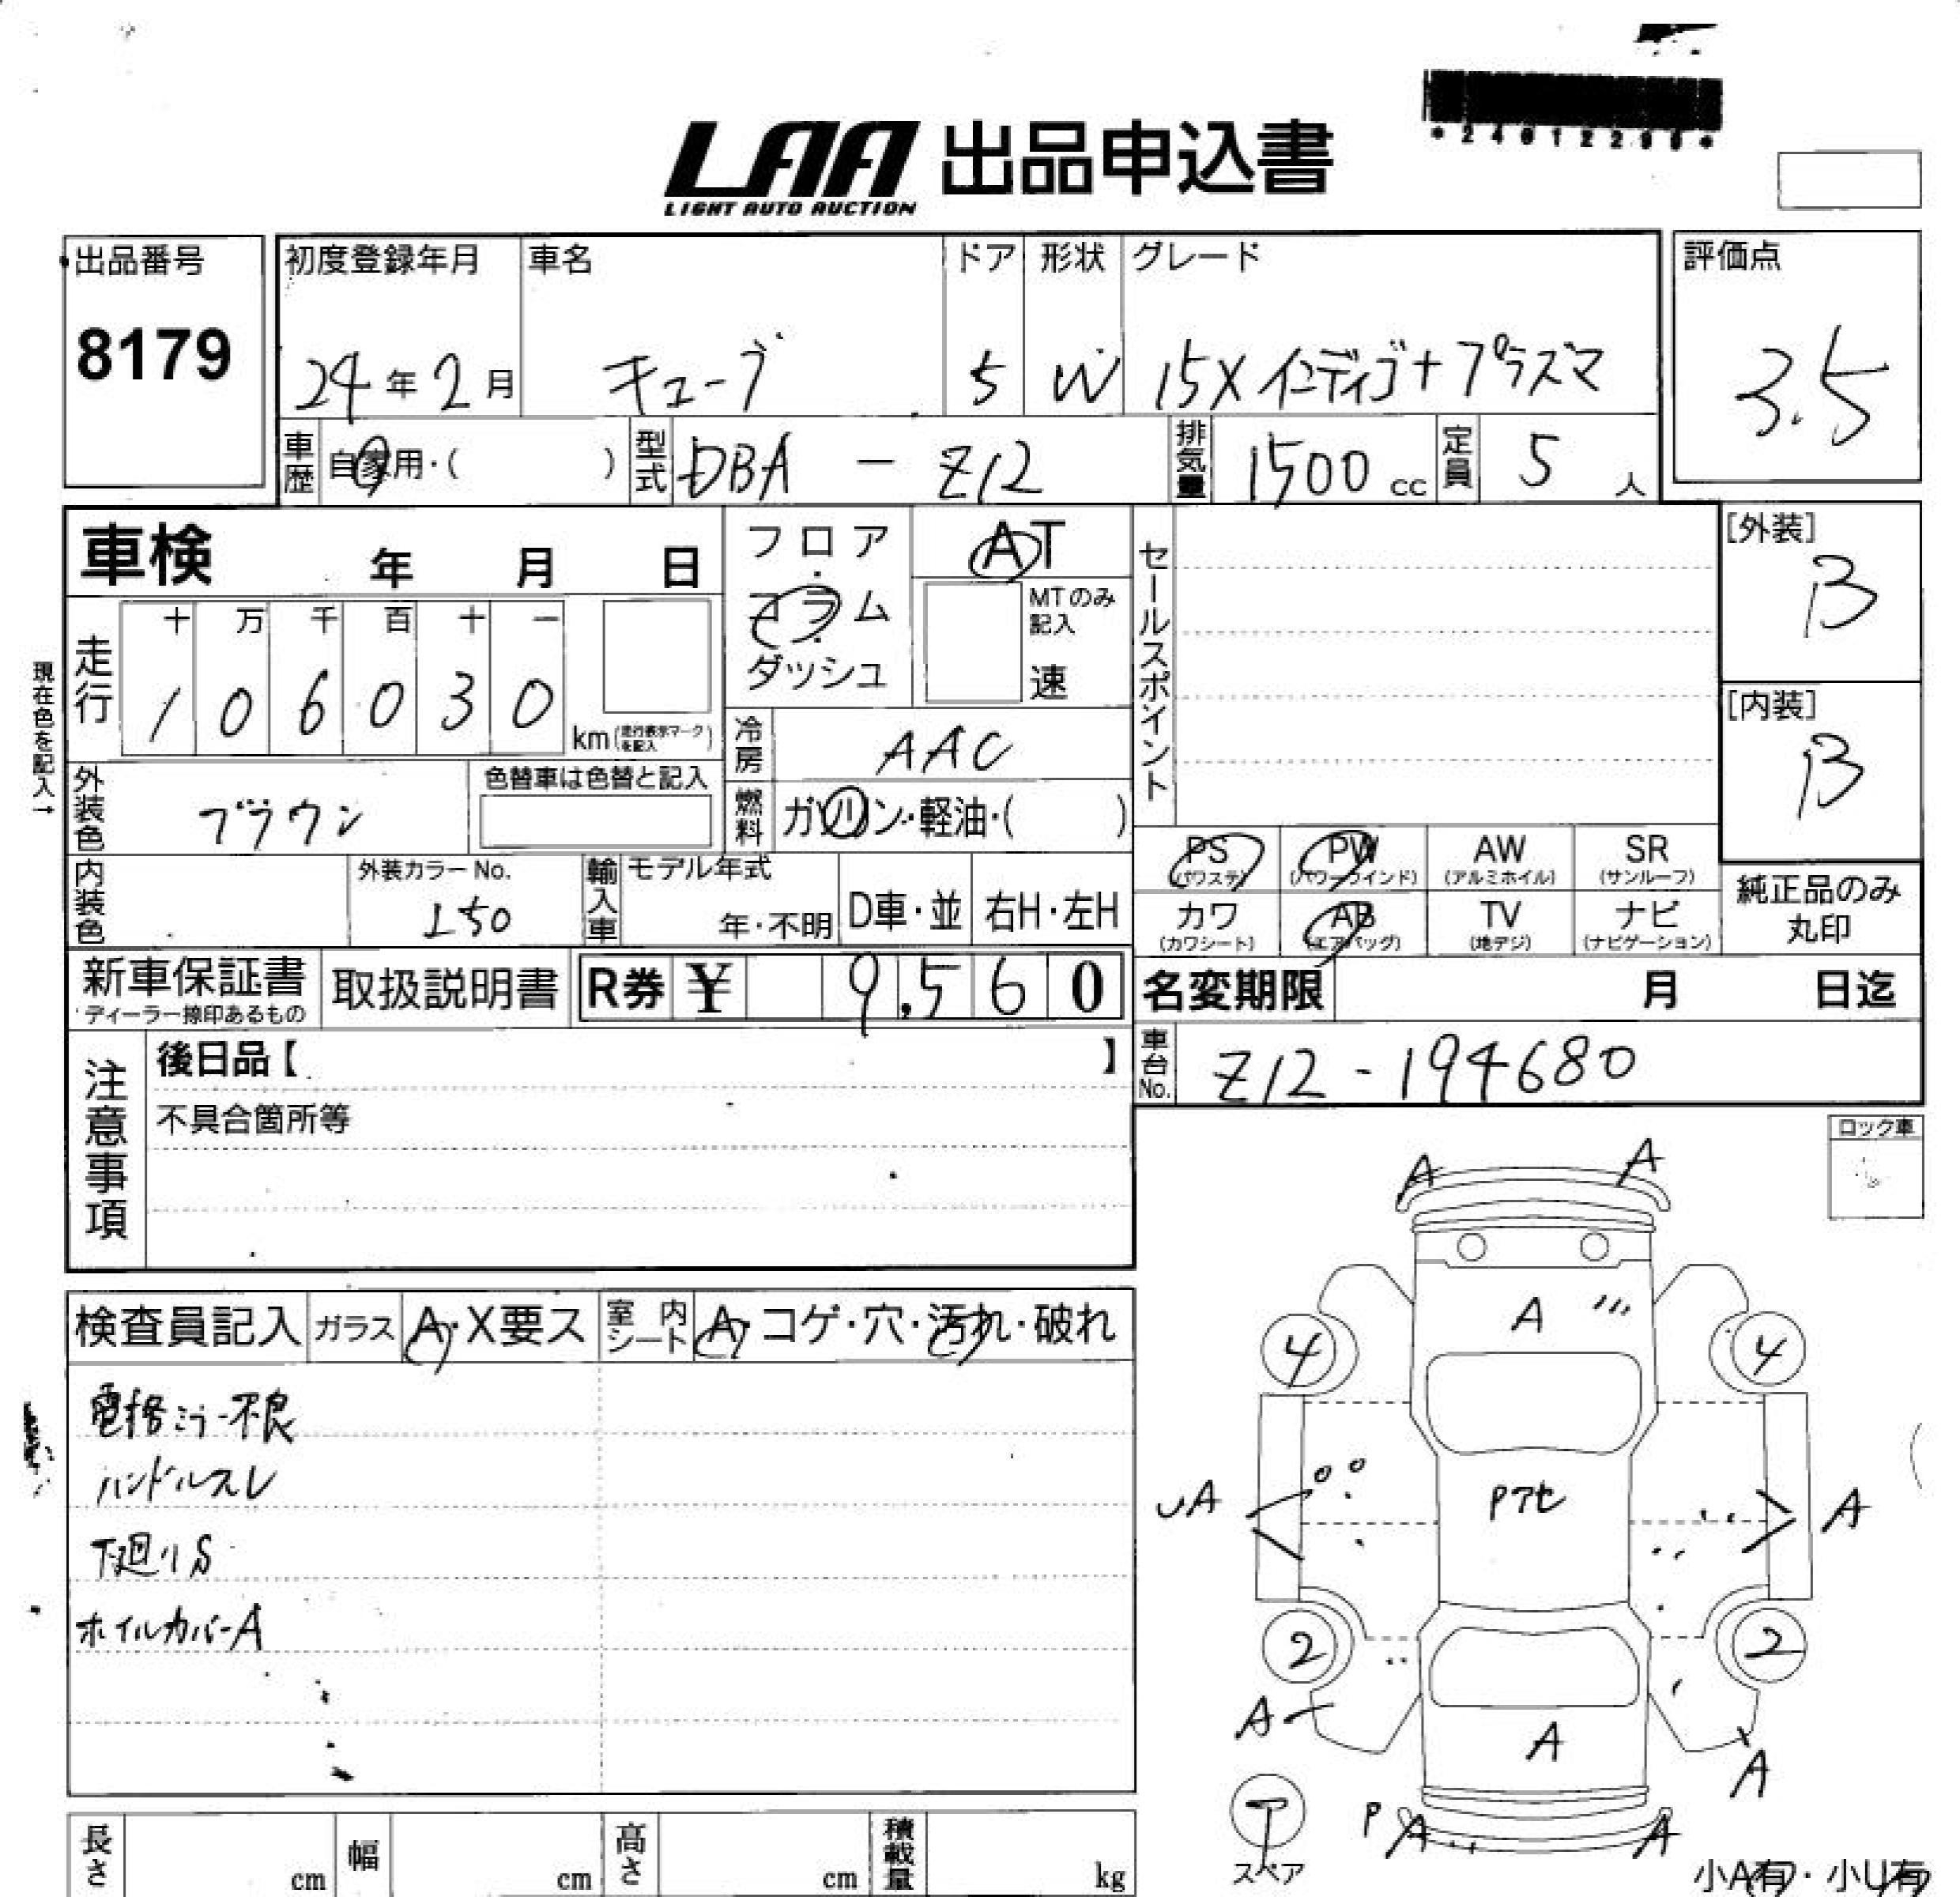 *24012299*
LAA 出品申込書
LIGHT AUTO AUCTION
出品番号
8179
初度登録年月
24年2月
車名
キューブ
ドア
5
形状
W
グレード
15X インディゴ+プラズマ
評価点
3.5
車歴
自家用・( )
型式
DBA - Z12
排気量
1500 cc
定員
5 人
車検 年 月 日
フロア・コラム・ダッシュ
AT
MTのみ記入
速
セールスポイント
[外装]
B
[内装]
B
現在色を記入→
走行
十 万 千 百 十 一
1 0 6 0 3 0 km (走行表示マークを記入)
冷房
AAC
外装色
ブラウン
色替車は色替と記入
燃料
ガソリン・軽油・( )
PS (パワステ)
PW (パワーウインド)
AW (アルミホイル)
SR (サンルーフ)
カワ (カワシート)
AB (エアバッグ)
TV (地デジ)
ナビ (ナビゲーション)
純正品のみ丸印
内装色
外装カラーNo.
L50
輸入車
モデル年式
年・不明
D車・並
右H・左H
新車保証書
ディーラー捺印あるもの
取扱説明書
R券 ¥ 9,560
名変期限 月 日迄
注意事項
後日品【 】
不具合箇所等
車台No.
Z12-194680
ロック車
検査員記入
ガラス
A・X要ス
室内シート
A・コゲ・穴・汚れ・破れ
電格ミラー不良
ハンドルスレ
下廻りS
ホイルカバーA
A A
A
4 4
UA
Pアセ
A
2 2
A
A
A
P A A
T
スペア
小A有・小U有
長さ cm
幅 cm
高さ cm
積載量 kg